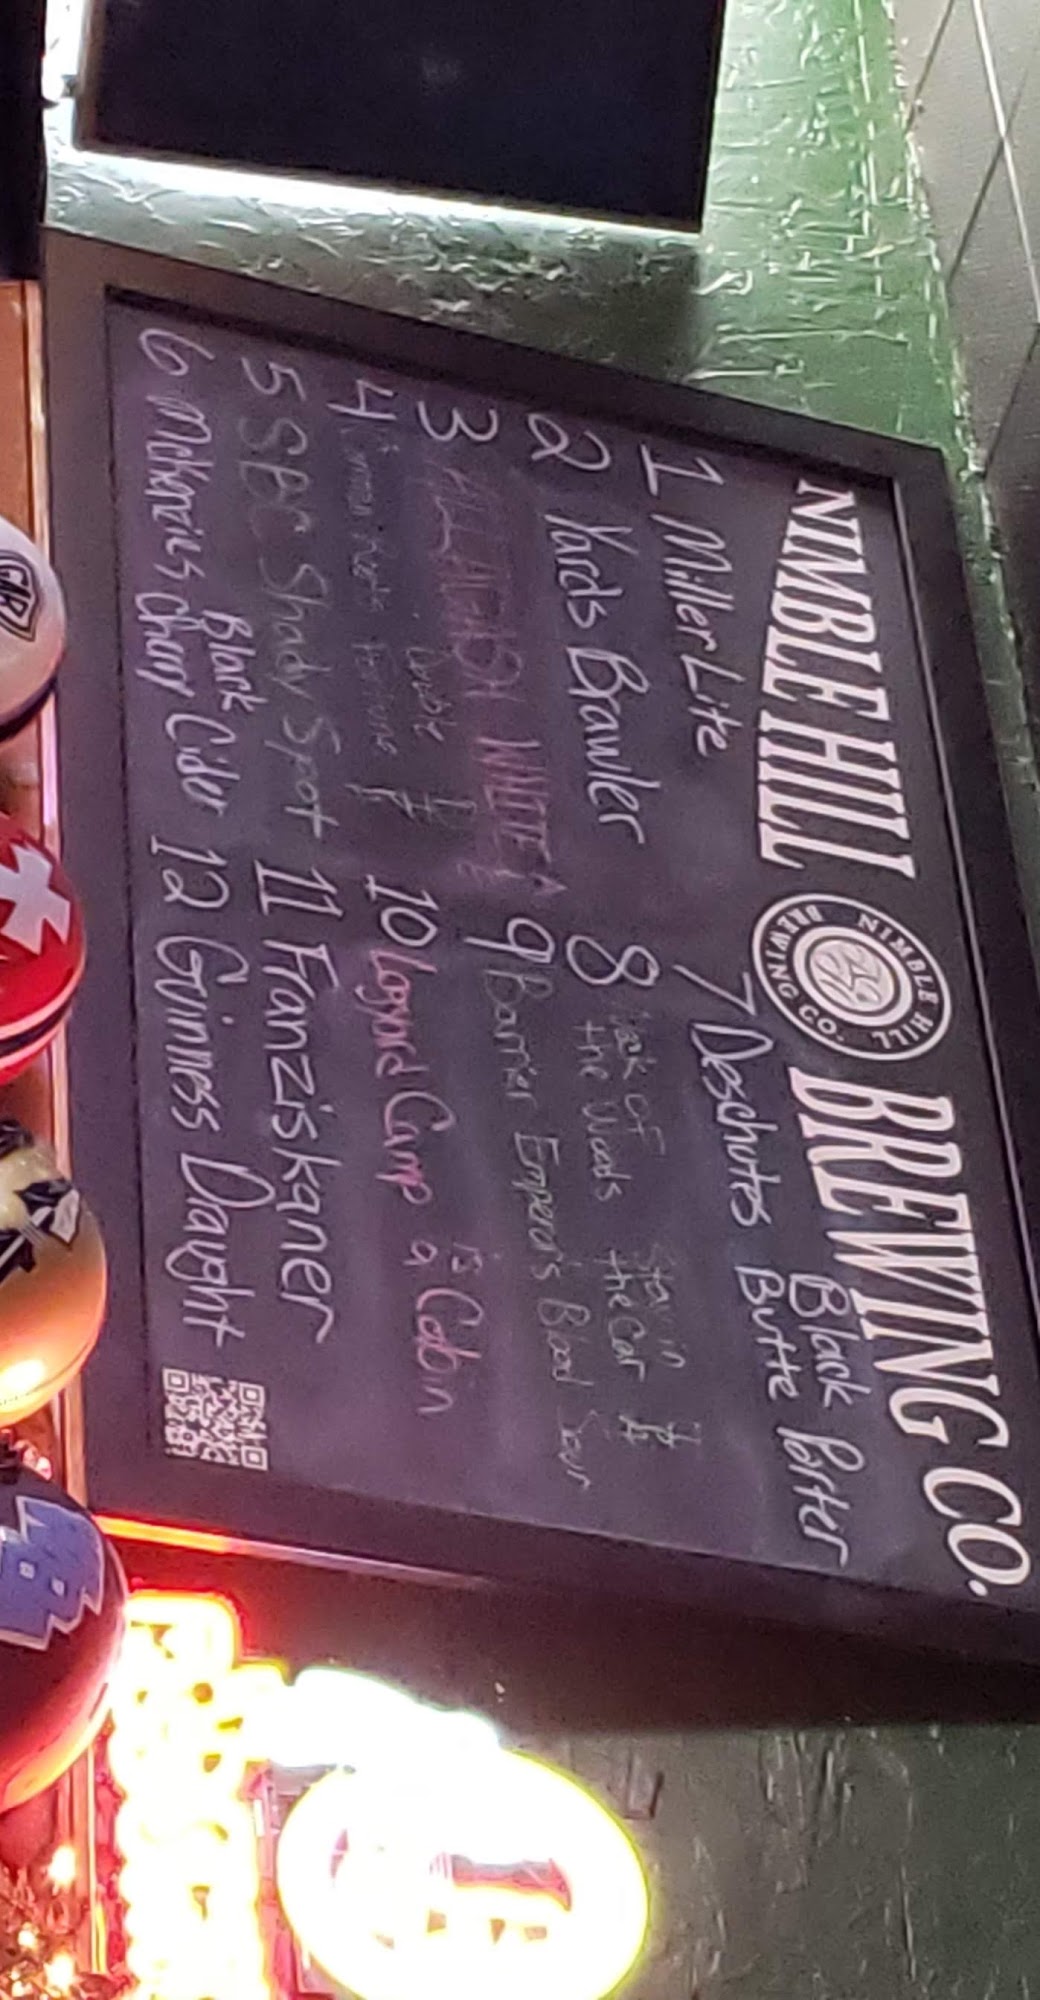 NIMBLE HILL BREWING CO.
NIMBLE HILL
BREWING CO.
1 Miller Lite
2 Yards Brawler
3
4
5 SBC Shady Spot
6 Mckenzies Black
Cherry Cider
7 Deschutes Black
Butte Portter
8 of Stay in
the Woods the Car
9 Barrier Emperor's Blood Sour
10 Logyard Camp is
a Cabin
11 Franziskaner
12 Guinness Daught